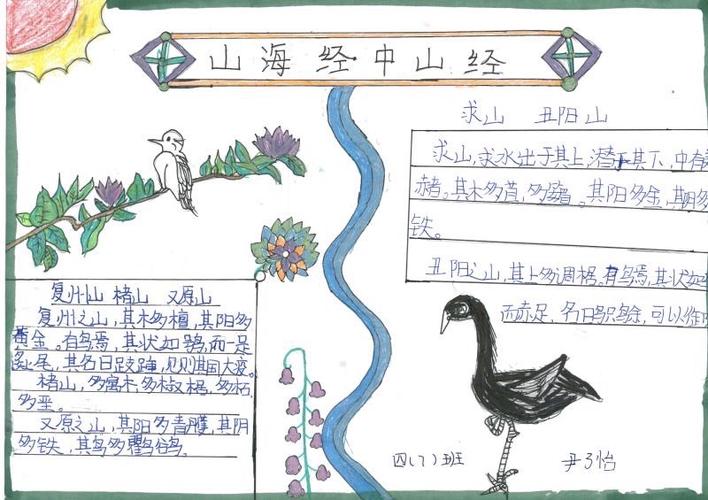 山海经中山经
求山 丑阳山
求山,求水出于其上,潜于其下,中有
赭。其木多苴,多。其阳多金,其阴多
铁。
丑阳之山,其上多椆椐。有鸟焉,其状如
而赤足,名曰,可以御
复州山 楮山 又原山
复州之山,其木多檀,其阳多
黄金。有鸟焉,其状如鸮,而一足
彘尾,其名曰跂踵,见则其国大疫。
楮山,多寓木,多椒椐,多柘,
多垩。
又原之山,其阳多青雘,其阴
多铁,其鸟多鸜鹆。
四(7)班 尹子怡